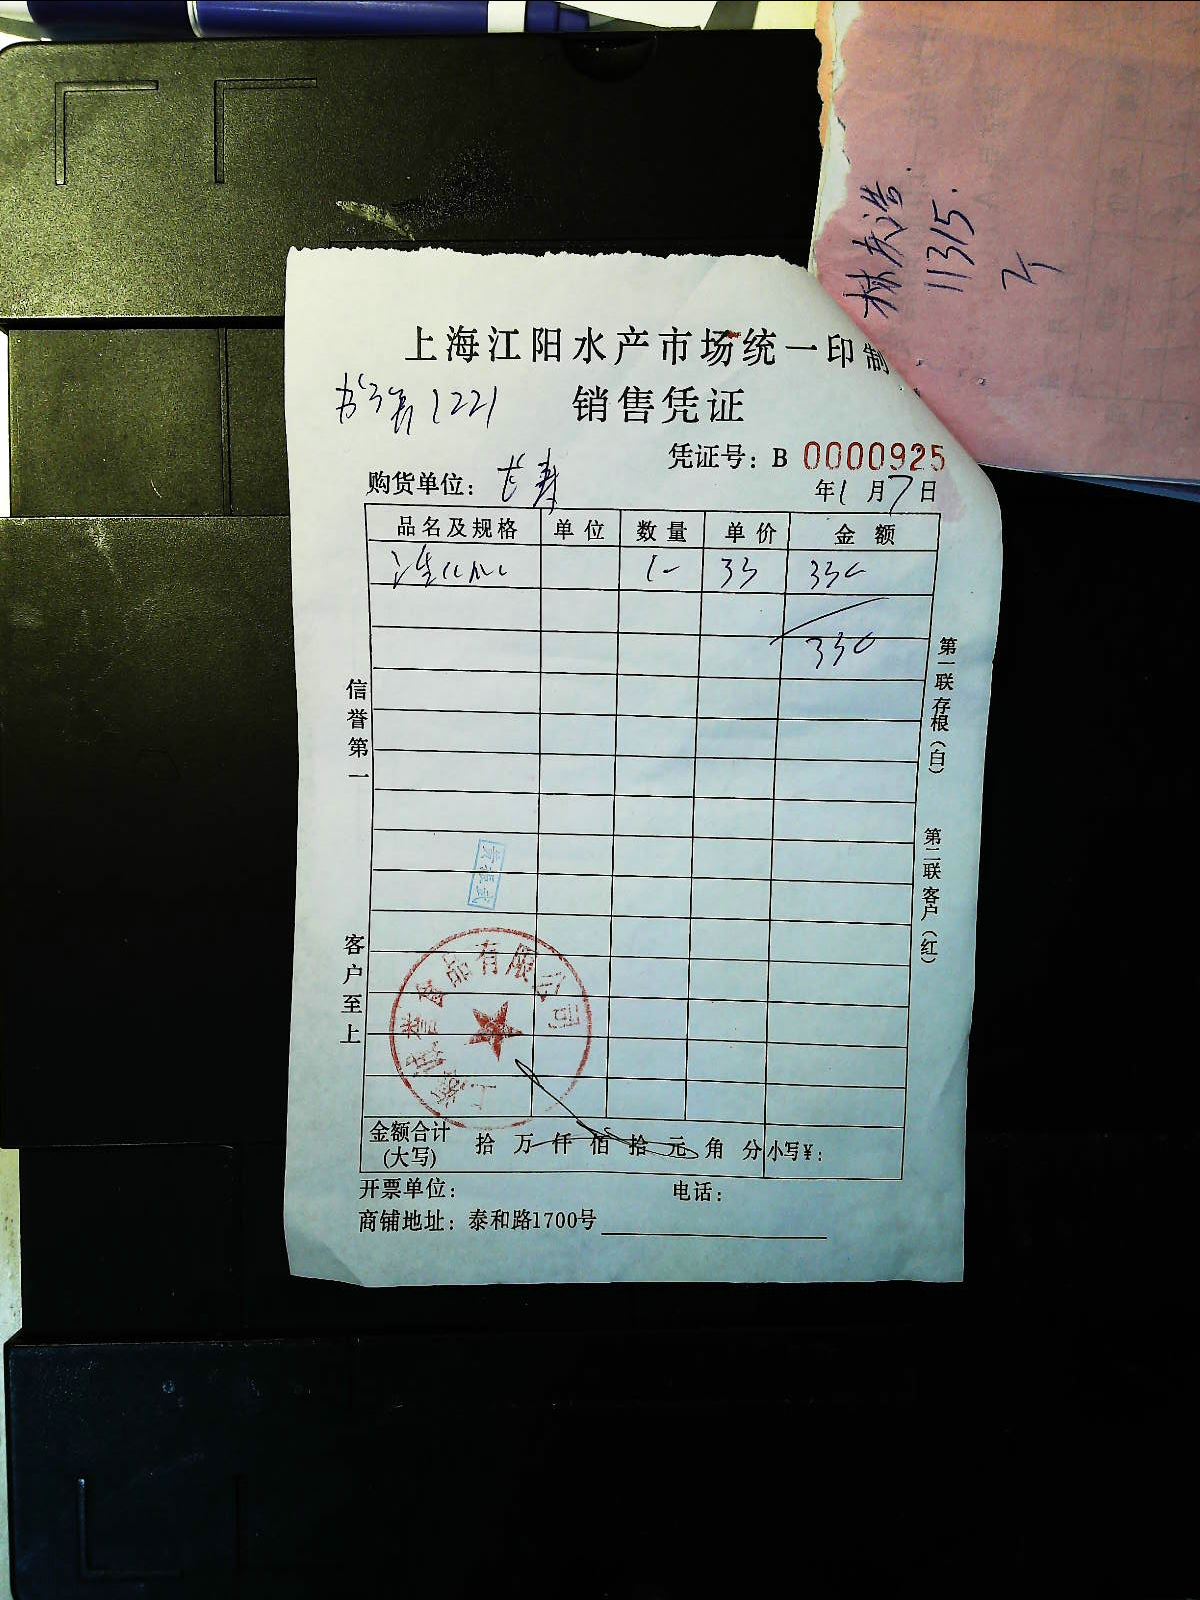 11315.
上海江阳水产市场统一印制
1221
销售凭证
凭证号：B 0000925
购货单位：长寿
年1月7日
品名及规格 单位 数量 单价 金额
33 330
330
信誉第一
客户至上
第一联存根（白）
第二联客户（红）
食品有限公司
金额合计（大写） 拾 万 仟 佰 拾 元 角 分 小写¥：
开票单位： 电话：
商铺地址：泰和路1700号